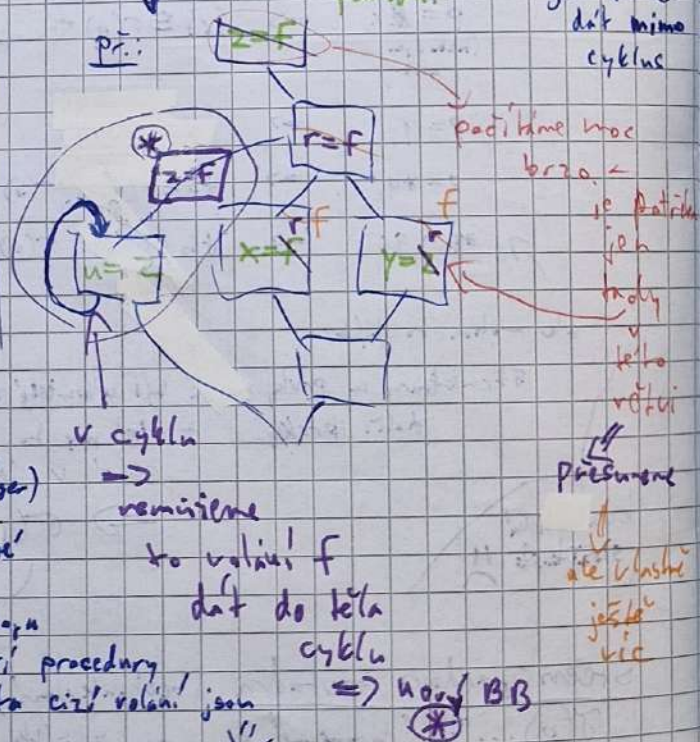 dát mimo
cyklus
př.:
z=f
r=f
*
z=f
u=z
x=f r f
y=z r f
počítáme moc
brzo
je potřeba
jen
tady
v
této
větvi
přesuneme
ale vlastně
ještě
víc
v cyklu
=>
nemůžeme
to volání f
dát do těla
cyklu
=> nový BB
*
procedury
cizí volání jsou